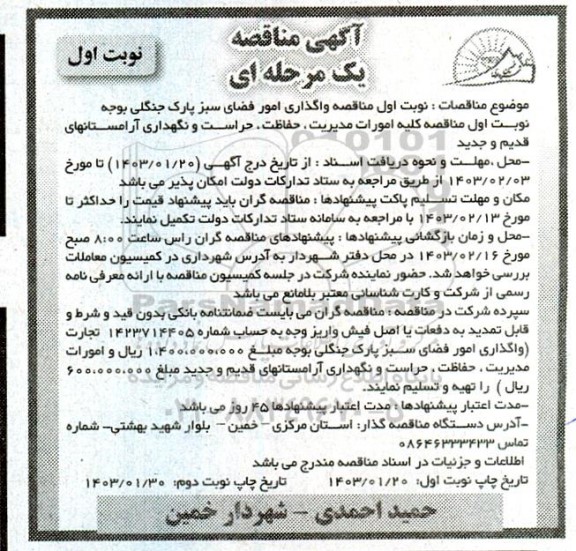 آگهی مناقصه
یک مرحله ای
نوبت اول
موضوع مناقصات : نوبت اول مناقصه واگذاری امور فضای سبز پارک جنگلی بوجه
نوبت اول مناقصه کلیه امورات مدیریت ، حفاظت ، حراست و نگهداری آرامستانهای
قدیم و جدید
-محل ،مهلت و نحوه دریافت اسناد : از تاریخ درج آگهی (۱۴۰۳/۰۱/۲۰) تا مورخ
۱۴۰۳/۰۲/۰۳ از طریق مراجعه به ستاد تدارکات دولت امکان پذیر می باشد
مکان و مهلت تسلیم پاکت پیشنهادها : مناقصه گران باید پیشنهاد قیمت را حداکثر تا
مورخ ۱۴۰۳/۰۲/۱۳ با مراجعه به سامانه ستاد تدارکات دولت تکمیل نمایند.
-محل و زمان بازگشائی پیشنهادها : پیشنهادهای مناقصه گران راس ساعت ۸:۰۰ صبح
مورخ ۱۴۰۳/۰۲/۱۶ در محل دفتر شهردار به آدرس شهرداری در کمیسیون معاملات
بررسی خواهد شد. حضور نماینده شرکت در جلسه کمیسیون مناقصه با ارائه معرفی نامه
رسمی از شرکت و کارت شناسائی معتبر بلامانع می باشد
سپرده شرکت در مناقصه : مناقصه گران می بایست ضمانتنامه بانکی بدون قید و شرط و
قابل تمدید به دفعات یا اصل فیش واریز وجه به حساب شماره ۱۴۲۳۷۱۴۴۰۵ تجارت
(واگذاری امور فضای سبز پارک جنگلی بوجه مبلغ ۱،۴۰۰،۰۰۰،۰۰۰ ریال و امورات
مدیریت ، حفاظت ، حراست و نگهداری آرامستانهای قدیم و جدید مبلغ ۶۰۰،۰۰۰،۰۰۰
ریال ) را تهیه و تسلیم نمایند.
-مدت اعتبار پیشنهادها : مدت اعتبار پیشنهادها ۴۵ روز می باشد
-آدرس دستگاه مناقصه گذار: استان مرکزی – خمین – بلوار شهید بهشتی– شماره
تماس ۰۸۶۴۶۳۳۳۴۳۳
اطلاعات و جزئیات در اسناد مناقصه مندرج می باشد
تاریخ چاپ نوبت اول: ۱۴۰۳/۰۱/۲۰ تاریخ چاپ نوبت دوم: ۱۴۰۳/۰۱/۳۰
حمید احمدی – شهردار خمین